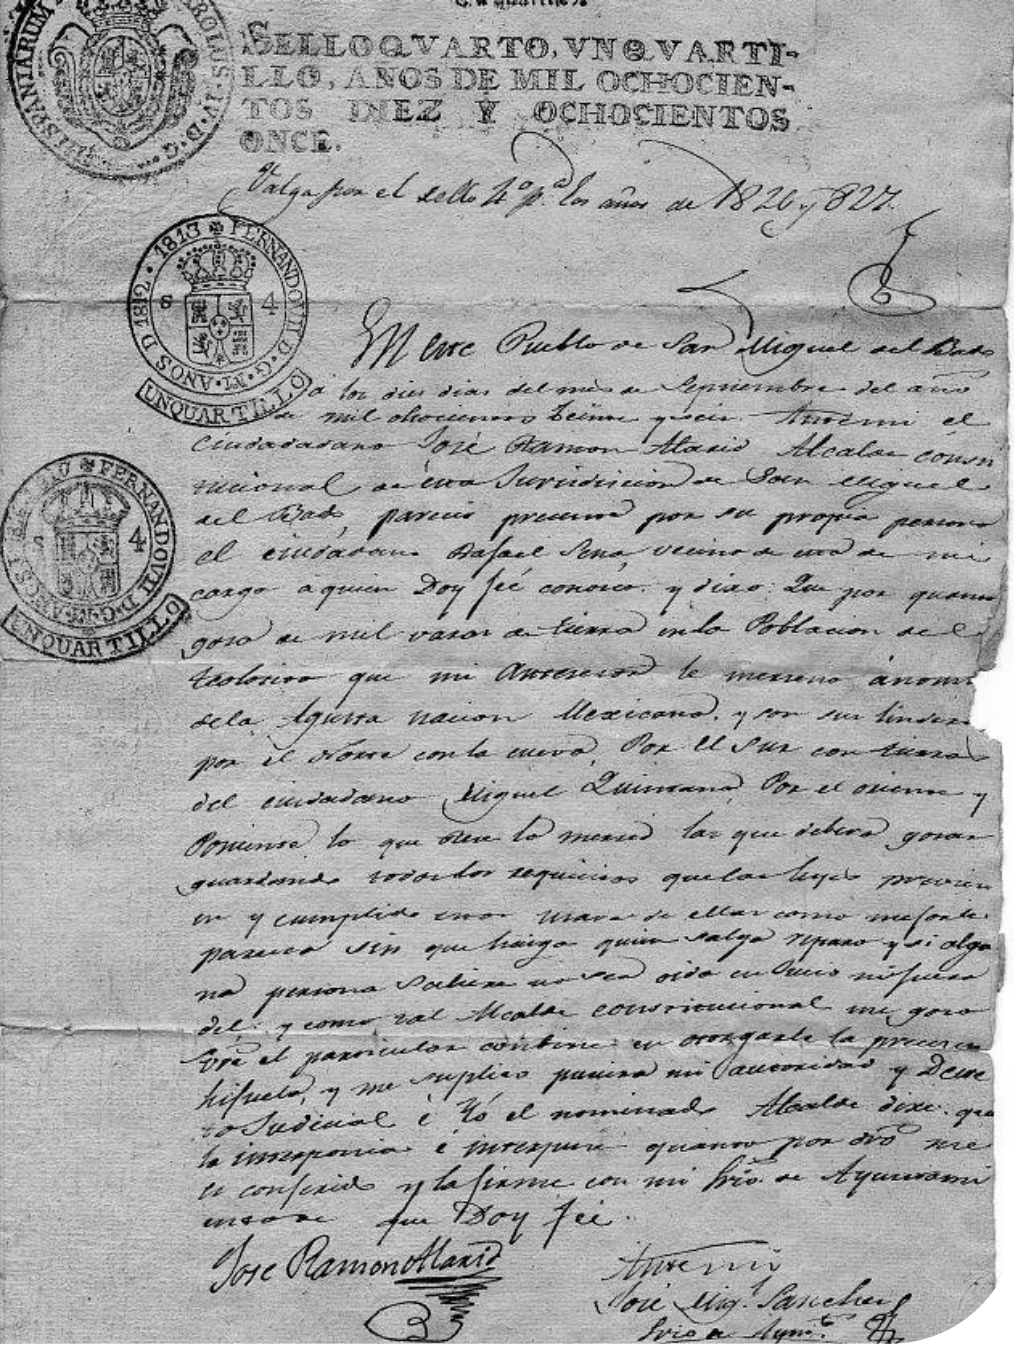 SELLO QVARTO, VN QVARTI-
LLO, AÑOS DE MIL OCHOCIEN-
TOS DIEZ Y OCHOCIENTOS
ONCE.
HISPANIARUM CAROLUS IV D G
Valga por el sello 4º pª los años de 1826 y 827.
FERNANDO VII D. G. AÑOS D 1812. 1813
S 4
UN QUARTILLO
En este Pueblo de San Miguel del Bado
á los dies dias del mes de Septiembre del año
de mil ochocientos beinte y seis. Antemi el
Ciudadadano José Ramon Alarid Alcalde consti
tucional de esta Jurisdiccion de San Miguel
del Bado, parecio presente por su propia persona
el ciudadano Rafael Sena, vecino de esta de mi
cargo á quien Doy fee conosco. y dixo: Que por quanto
gosa de mil varas de tierra en la Poblacion del
que mi Antesesor le merseno á nom
de la Agusta nacion Mexicana. y son sus lindero
por el Norte con la cueva, Por El Sur con tierras
del ciudadano Miguel Quintana, Por el oriente y
Poniente lo que rese la mersed las que debera gosar
guardando todos los requicitos que las leyes previen
en y cumplido esos usara de ellas como mejor le
paresca sin que haiga quien salga reparo y si algu
na persona saliere no sea oida en Juicio ni fuera
del: y como tal Alcalde constitucional me
el particular en otorgarle la presente
hijuela, y me suplico pusiera mi autoridad y Decre
to Judicial é Yó el nominado Alcalde dixe: que
la interponia é interpuse quanto por dro me
es conferido y la firme con mi Srio. de Ayuntami
ento de que Doy fee.
Jose Ramon Alarid
Antemi
José Mig.l Sanches
Srio de Aym.to
FERNANDO VII D. G.
S 4
UN QUARTILLO